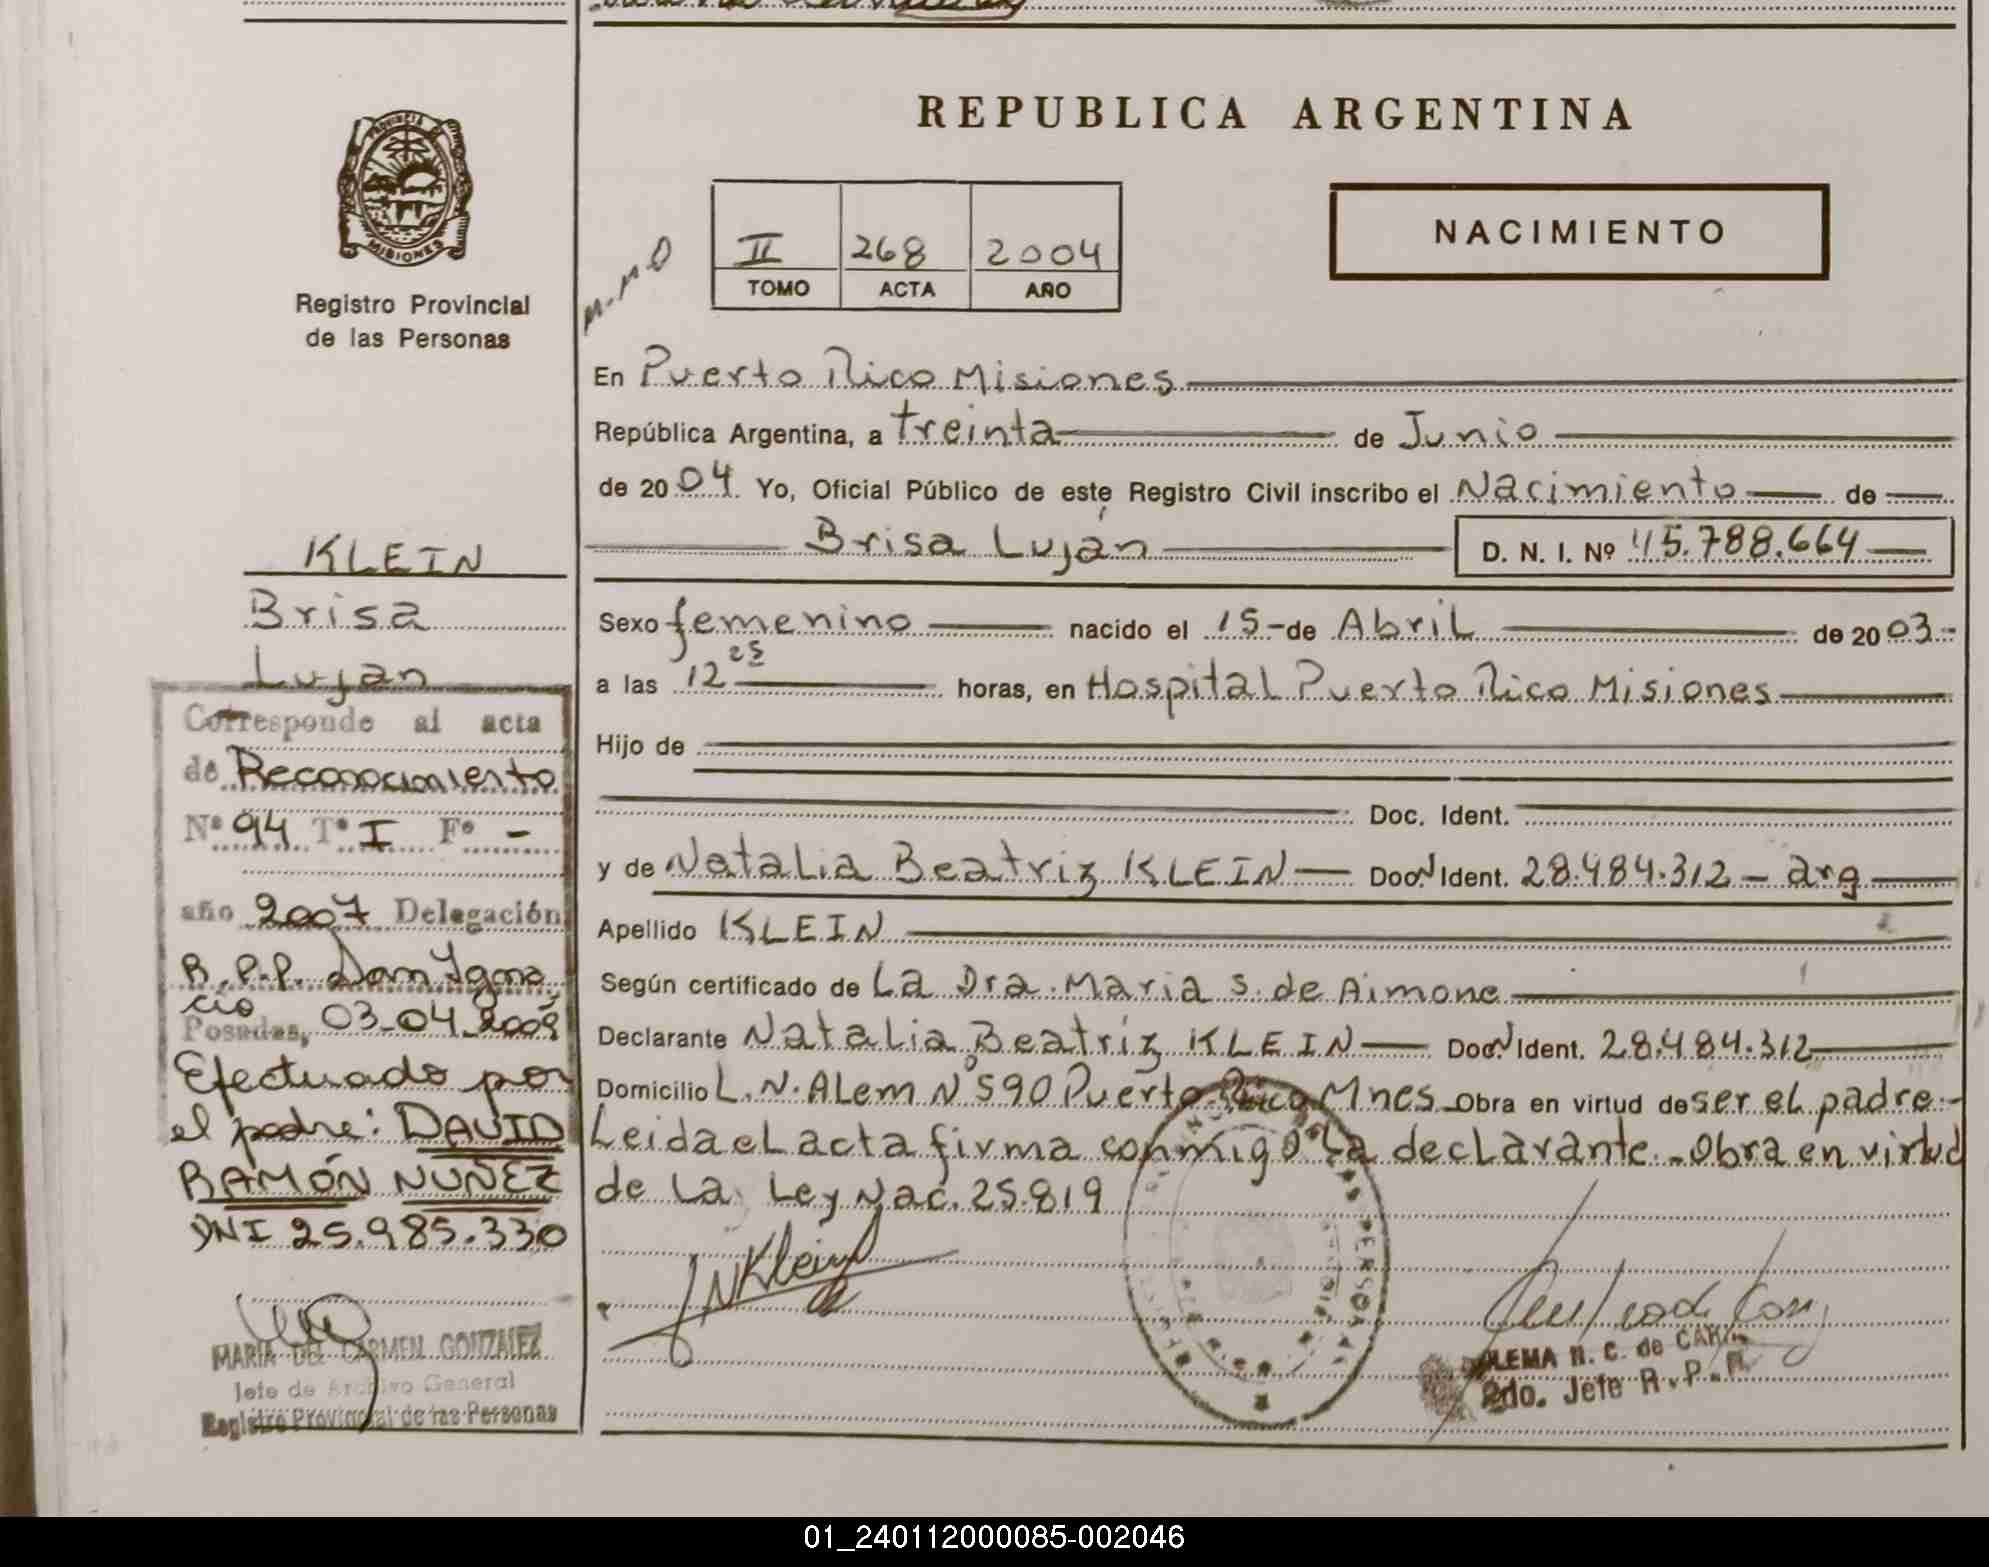 REPUBLICA ARGENTINA
PROVINCIA DE
MISIONES
Registro Provincial
de las Personas
II 268 2004
TOMO ACTA AÑO
NACIMIENTO
En Puerto Rico Misiones
República Argentina, a treinta de Junio
de 2004. Yo, Oficial Público de este Registro Civil inscribo el Nacimiento de
Brisa Luján D. N. I. Nº 45.788.664
Sexo femenino nacido el 15 de Abril de 2003
a las 12 25 horas, en Hospital Puerto Rico Misiones
Hijo de
Doc. Ident.
y de Natalia Beatriz KLEIN Doc. N Ident. 28.484.312 - arg
Apellido KLEIN
Según certificado de La Dra. Maria S. de Aimone
Declarante Natalia Beatriz KLEIN Doc. N Ident. 28.484.312
Domicilio L. N. ALem Nº 590 Puerto Rico Mnes. Obra en virtud de ser el padre
Leida el acta firma conmigo la declarante. Obra en virtud
de La Ley Nac. 25.819
NKlein
LEMA N. C. de
2do. Jefe R. P. P.
KLEIN
Brisa
Luján
Corresponde al acta
de Reconocimiento
Nº 94 Tº I Fº -
año 2007 Delegación
R.P.P. Dom Igna
cio
Posadas, 03-04-2008
Efectuado por
el padre: DAVID
RAMÓN NUÑEZ
DNI 25.985.330
MARIA DEL CARMEN GONZALEZ
Jefe de Archivo General
Registro Provincial de las Personas
01_240112000085-002046